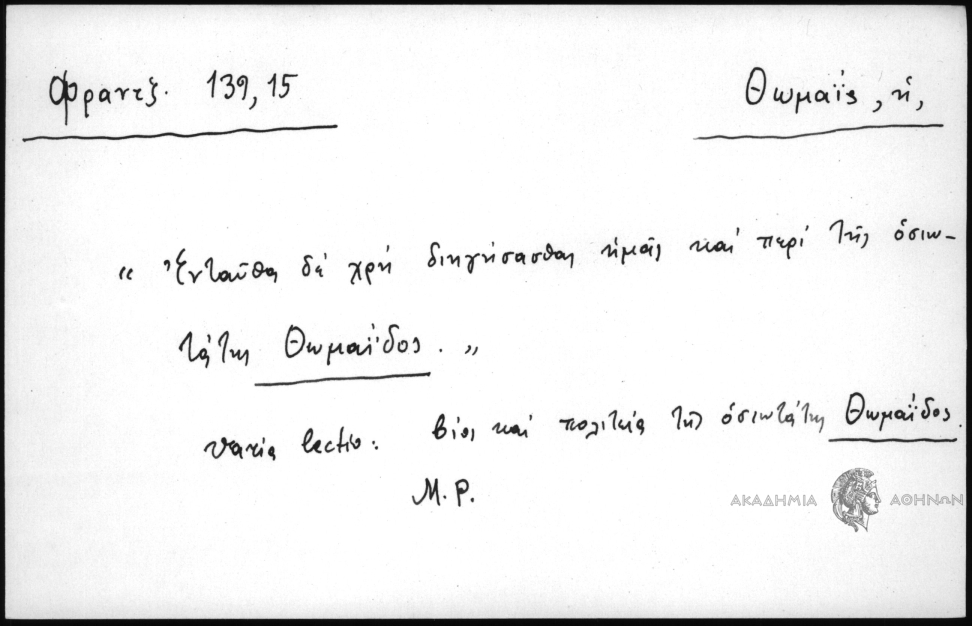 Φραντζ. 139, 15
Θωμαΐς, ἡ,
" Ἐνταῦθα δὲ χρὴ διηγήσασθαι ἡμᾶς καὶ περὶ τῆς ὁσιω-
τάτης Θωμαΐδος. "
varia lectio: βίος καὶ πολιτεία τῆς ὁσιωτάτης Θωμαΐδος.
M. P.
ΑΚΑΔΗΜΙΑ ΑΘΗΝΩΝ